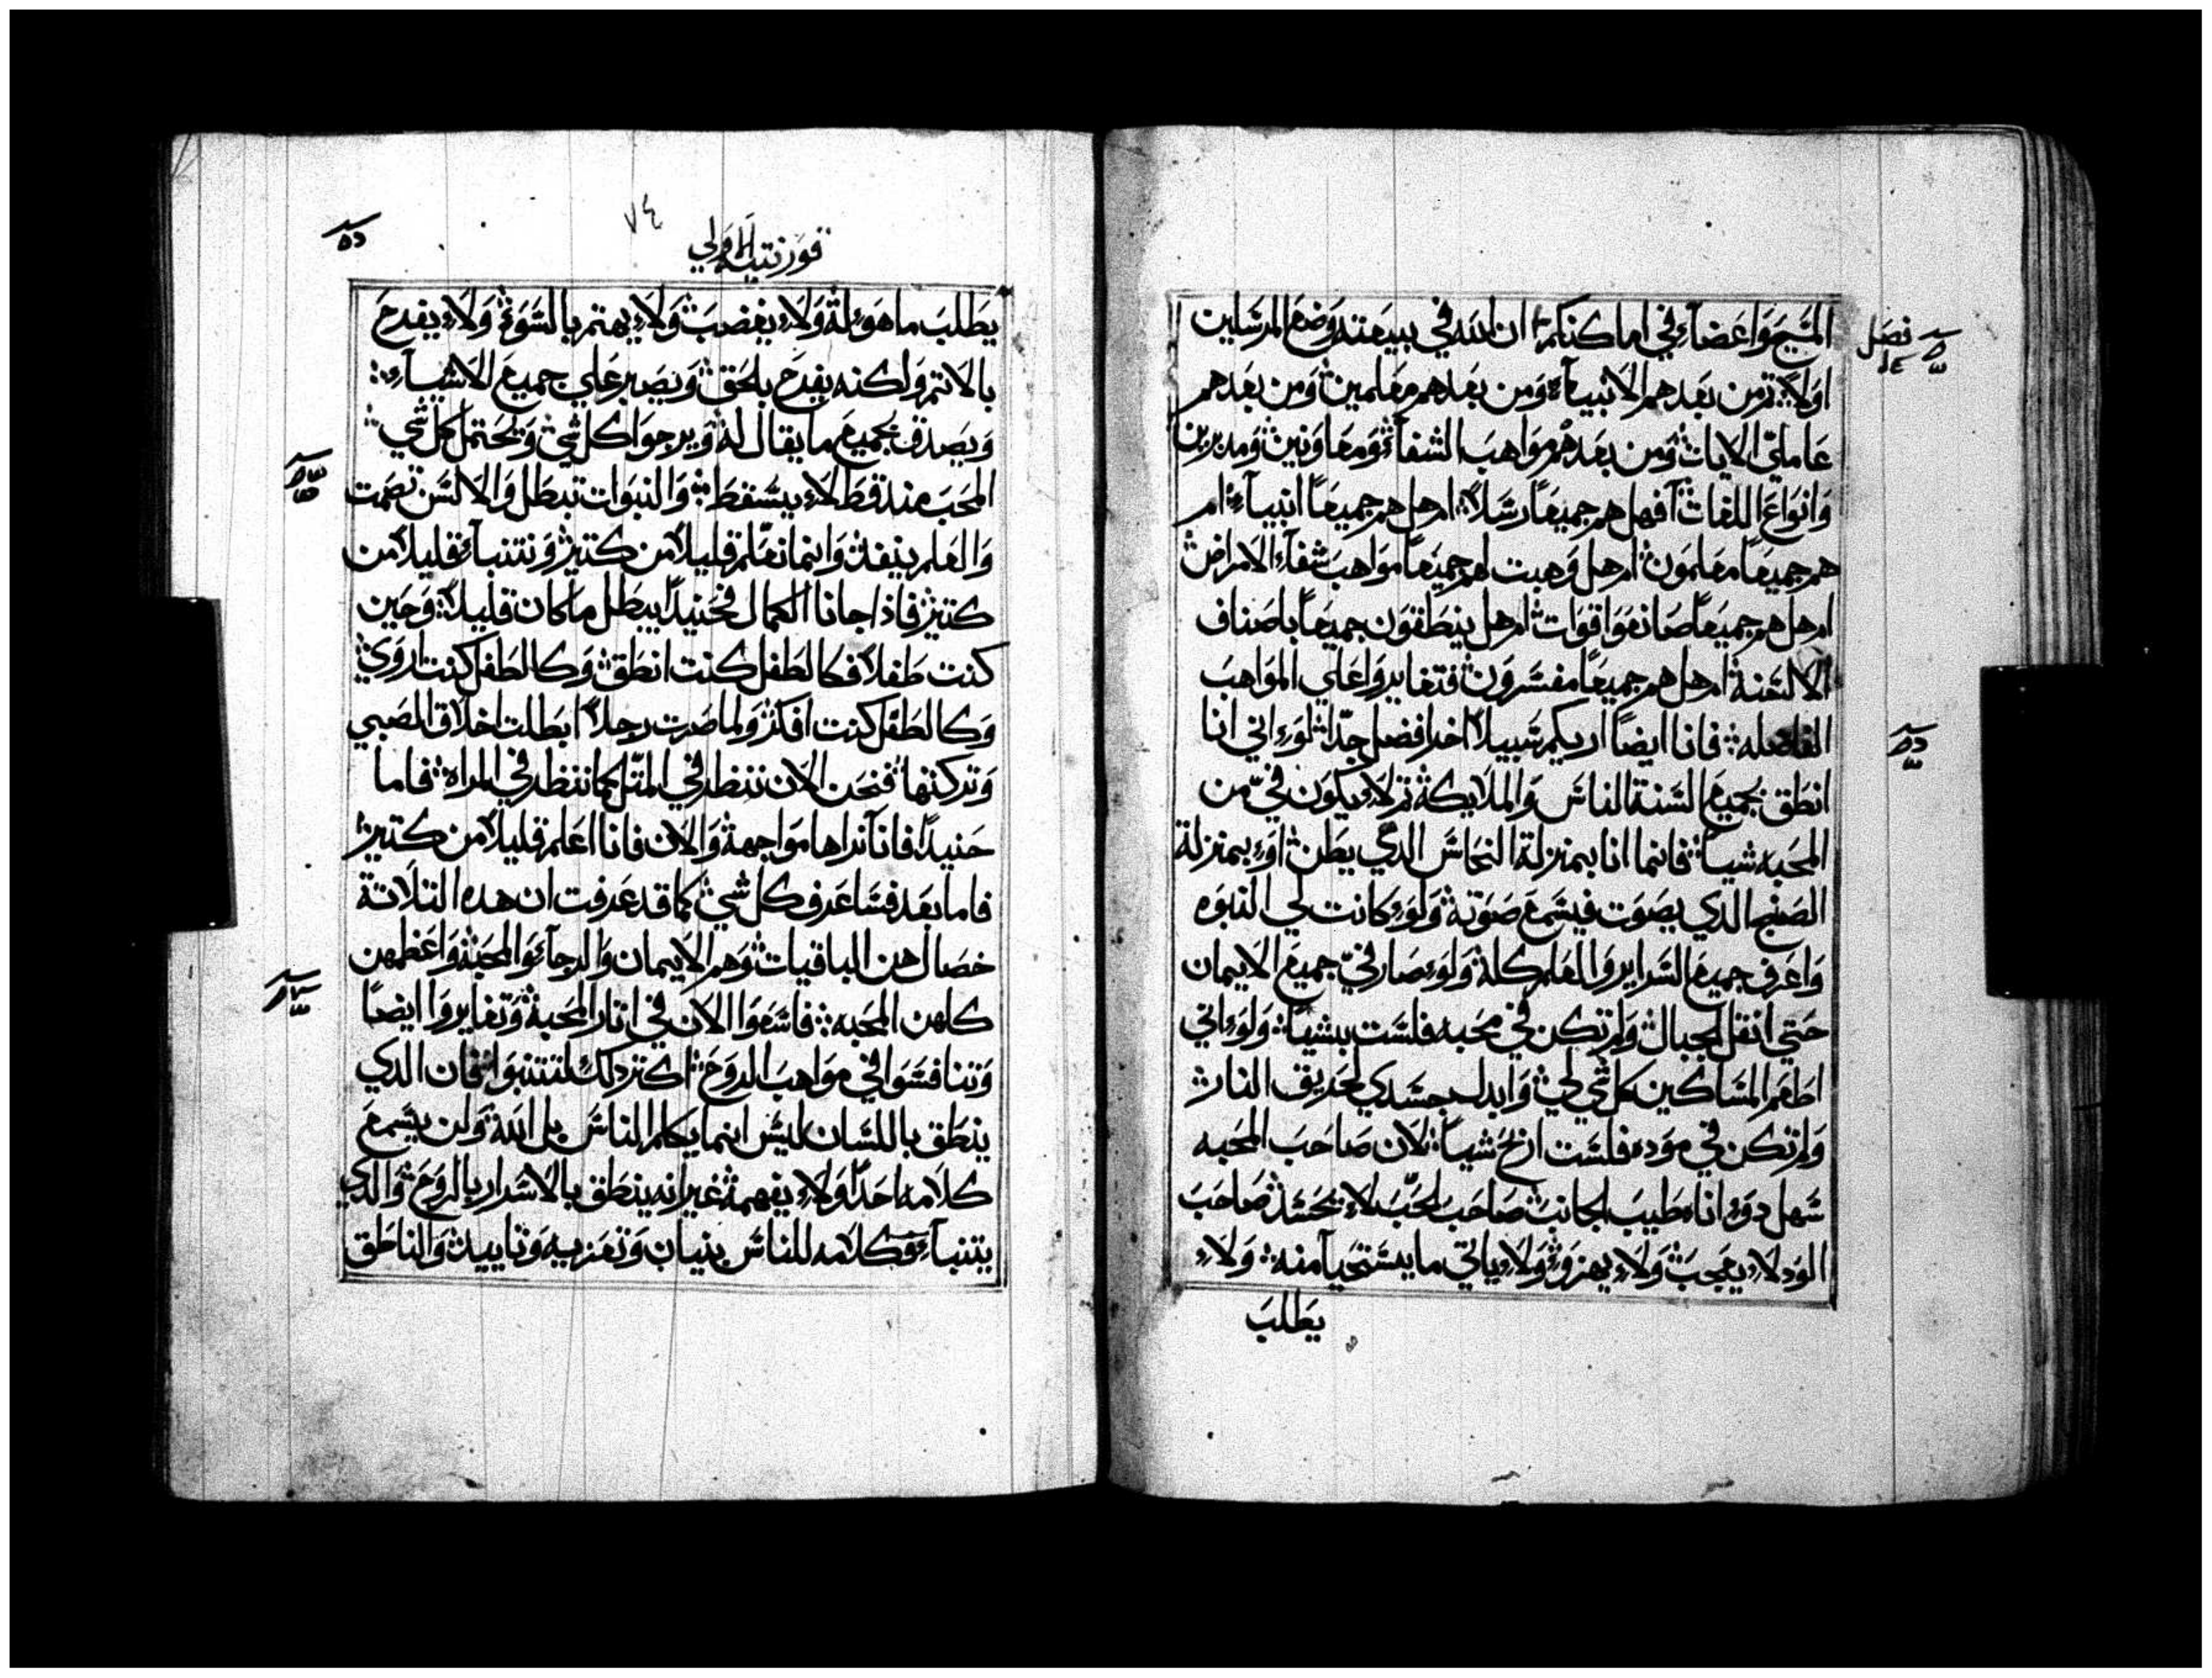 المسيح واعضاء في اماكنكم ان الله في بيعته وضع المرسلين
اولا ثم من بعدهم الانبياء ومن بعدهم معلمين ومن بعدهم
عاملي الايات ومن بعدهم مواهب الشفاء ومعاونين ومدبرين
وانواع اللغات افهل هم جميعا رسلا ام هل هم جميعا انبياء ام
هم جميعا معلمون ام هل وهبت لهم جميعا مواهب شفاء الامراض
ام هل هم جميعا صانعوا قوات ام هل ينطقون جميعا باصناف
الالسنة ام هل هم جميعا مفسرون فتغايروا علي المواهب
الفاضله فانا ايضا اريكم سبيلا اخر افضل جدا لوء اني انا
انطق بجميع السنة الناس والملايكة تم لاء يكون في من
المحبه شيا فانما انا بمنزلة النحاس الدي يطن اوء بمنزلة
الصنج الدي يصوت فيسمع صوته ولوء كانت لي النبوه
واعرف جميع السراير والعلم كله ولوء صار في جميع الايمان
حتي انقل الجبال ولم تكن في محبه فلست بشيا ولوء اني
اطعم المساكين كل شي لي وابدل جسدي لحريق النار
ولم تكن في موده فلست اربح شيا لان صاحب المحبه
سهل دوء اناه طيب الجانب صاحب الحب لاء يحسد صاحب
الود لاء يعجب ولاء يهزوء ولاء ياتي ما يستحيا منه ولاء
يطلب
فصل
٧٤
قورنتيه الاولي
يطلب ما هوء له ولاء يغضب ولاء يهتم بالسوء ولاء يفرح
بالاتم ولكنه يفرح بالحق ويصبر علي جميع الاشياء
ويصدق بجميع ما يقال له ويرجوا كل شي ويحتمل كل شي
المحب مند قط لاء يسقط والنبوات تبطل والالسن تصمت
والعلم ينفد وانما نعلم قليلا من كتير ونتنباء قليلا من
كتير فادا جانا الكمال فحنيدا يبطل ما كان قليلا وحين
كنت طفلا فكالطفل كنت انطق وكالطفل كنت اروي
وكالطفل كنت افكر ولما صرت رجلا ابطلت اخلاق الصبي
وتركتها فنحن الان ننظر في المتل كما ننظر في المراه فاما
حنيدا فانا نراها مواجهة والان فانا اعلم قليلا من كتير
فاما بعد فساعرف كل شي كما قد عرفت ان هده التلاتة
خصال هن الباقيات وهم الايمان والرجاء والمحبة واعظمهن
كلهن المحبه فاسعوا الان في اتار المحبة وتغايروا ايضا
وتنافسوا في مواهب الروح اكتر دلك لتتنبوا فان الدي
ينطق باللسان ليس انما يكلم الناس بل الله ولن يسمع
كلامه احدا ولاء يفهمه غير انه ينطق بالاسرار بالروح والدي
يتنباء فكلامه للناس بنيان وتعزيه وتاييد والناطق